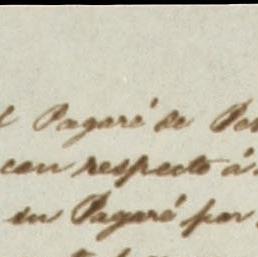 Pagaré de
con respecto á
su Pagaré por